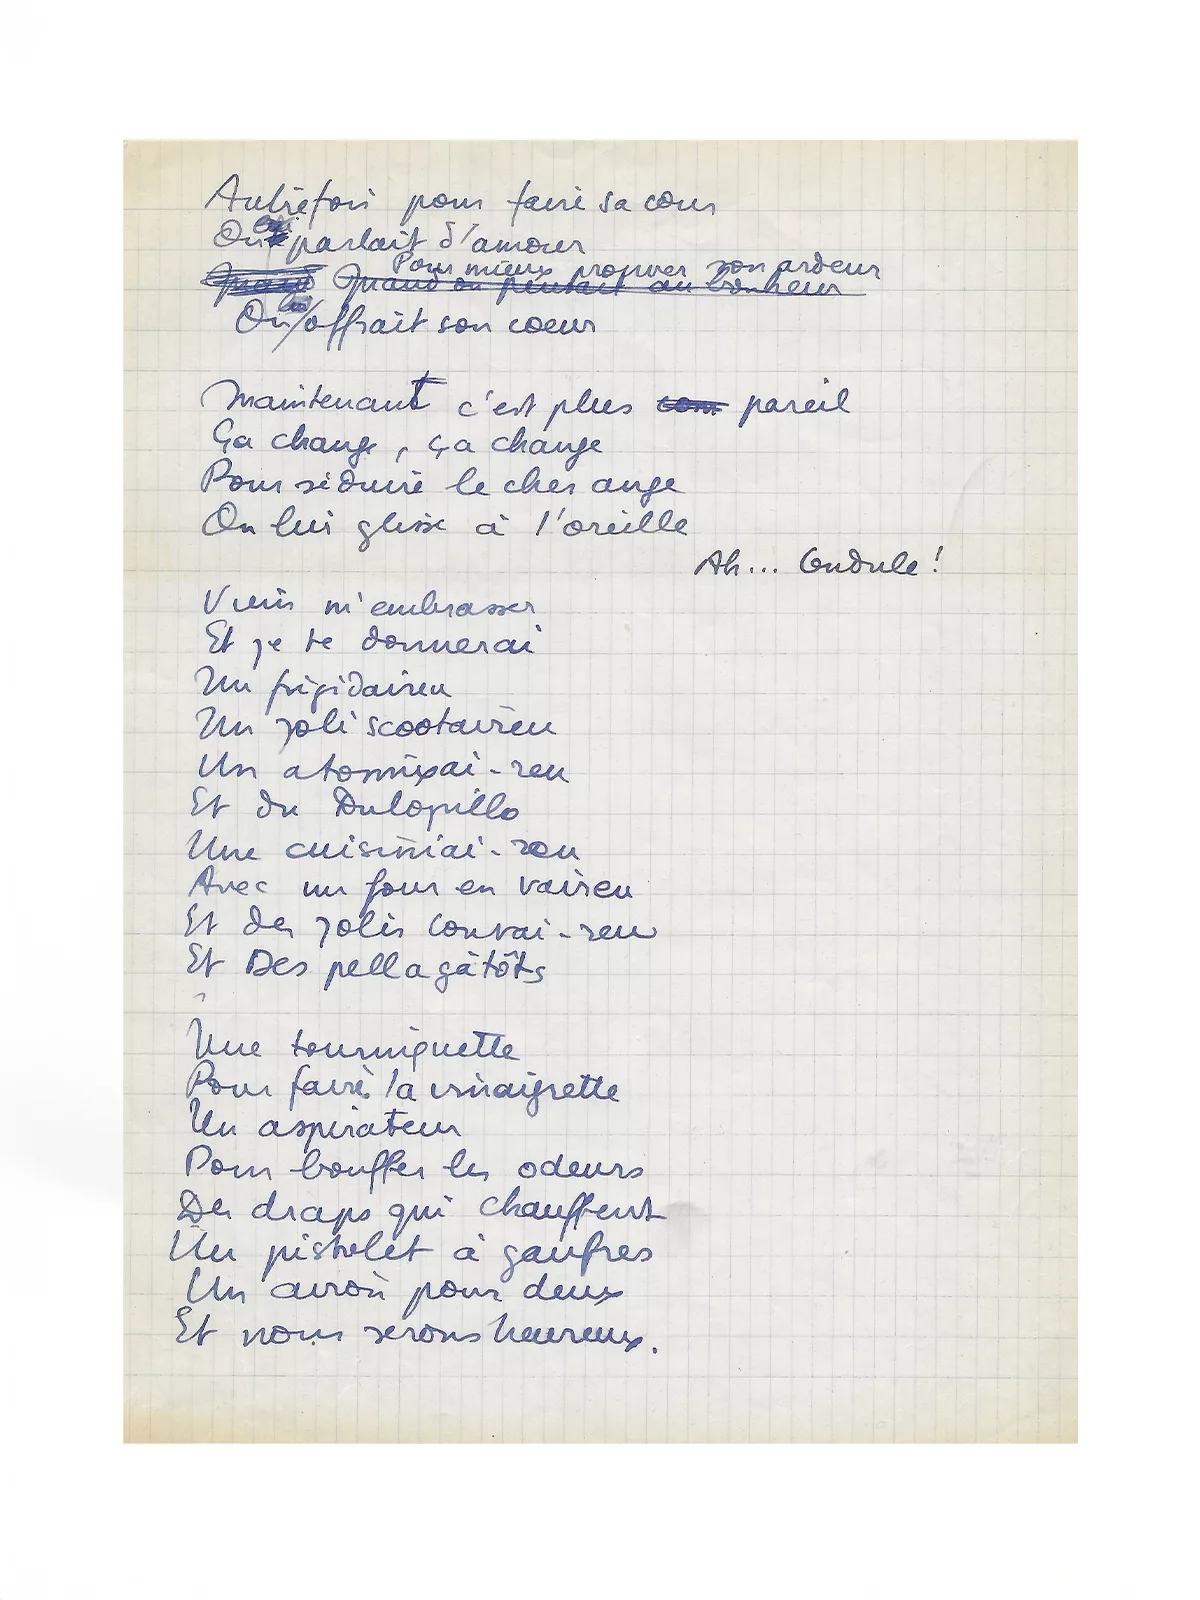 Autrefois pour faire sa cour
On parlait d'amour
Pour mieux prouver son ardeur
Quand on pensait au bonheur
On lui offrait son coeur
Maintenant c'est plus com pareil
Ça change, ça change
Pour séduire le cher ange
On lui glisse à l'oreille
Ah... Gudule !
Viens m'embrasser
Et je te donnerai
Un frigidaireu
Un joli scootaireu
Un atomixai-reu
Et du Dulopillo
Une cuisiniai-reu
Avec un four en vaireu
Et des jolis couvai-reu
Et Des pellagâtôts
Une tourniquette
Pour faire la vinaigrette
Un aspirateur
Pour bouffer les odeurs
Des draps qui chauffent
Un pistolet à gaufres
Un avion pour deux
Et nous serons heureux.